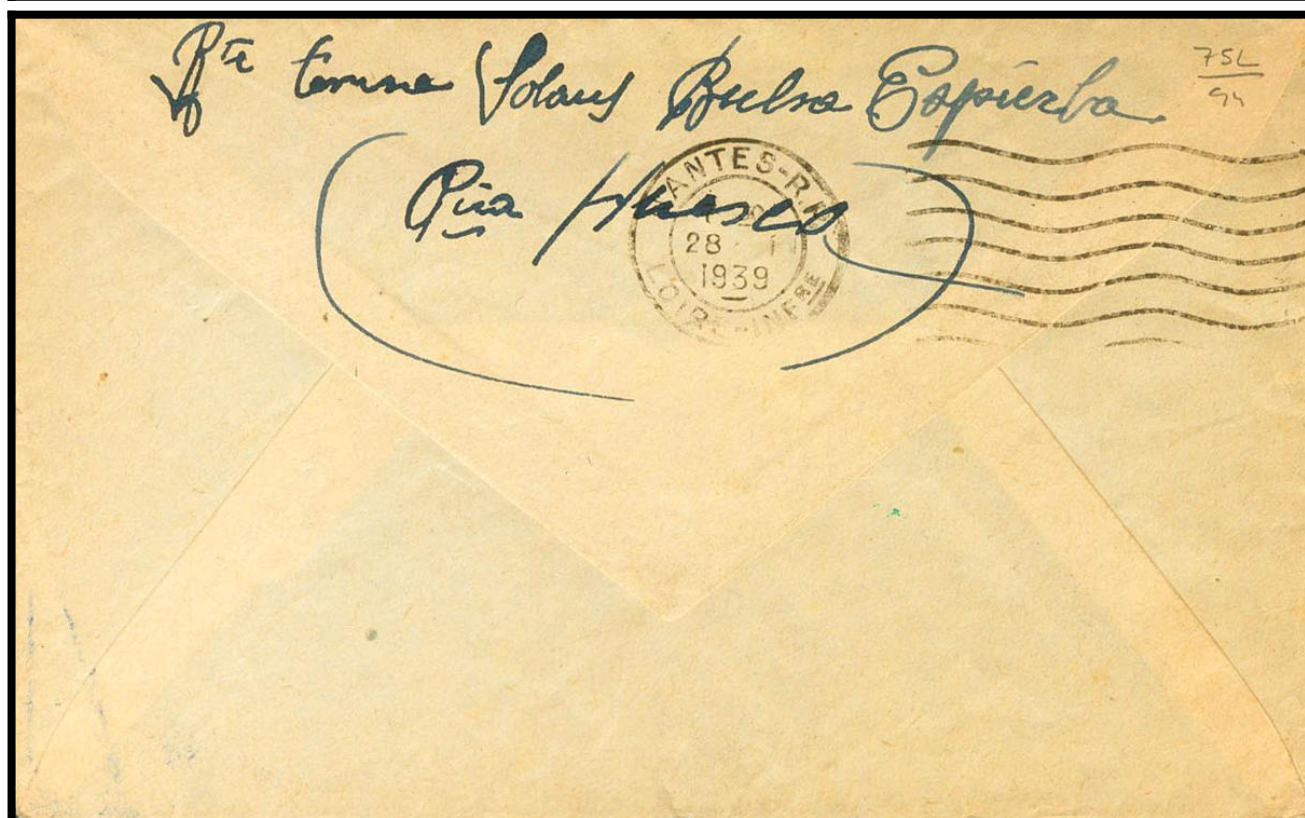 Rte Solans Bielsa Espierba
75L
94
Pcia Huesca
NANTES-R.P.
28 - 1
1939
LOIRE-INFRE